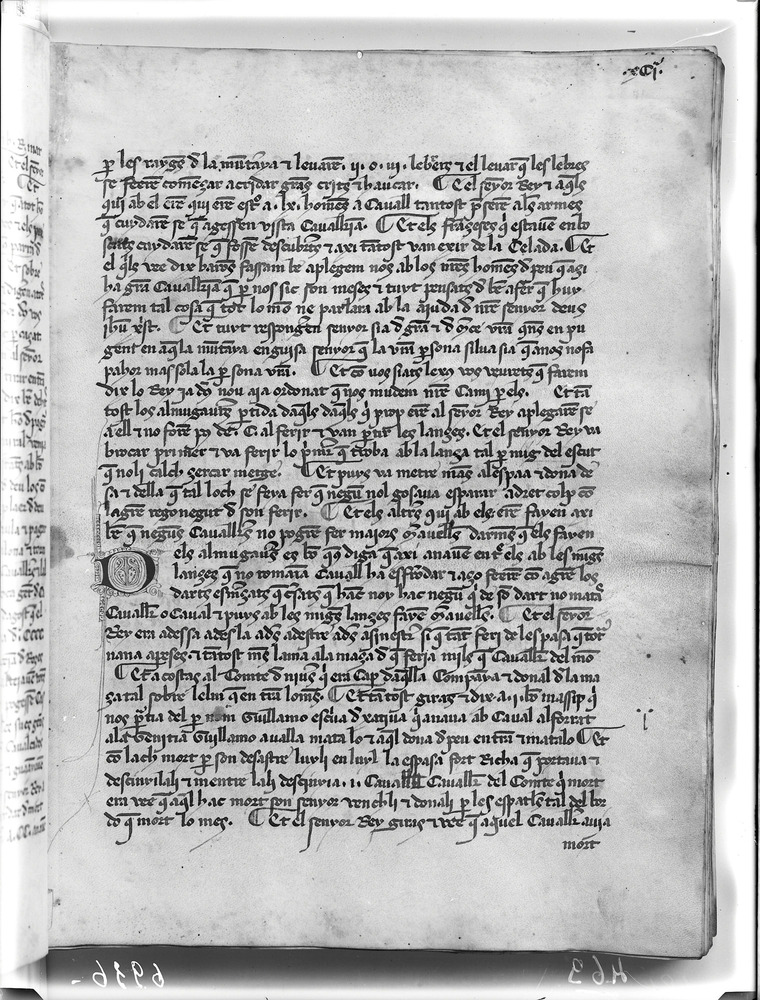 .xCj.
p les raygs d la mūtāya ⁊ leuarē .ij. o .iij. lebres ⁊ el leuar q̄ les lebres
se feerē comēsar a cridar grās crits ⁊ hauear. ¶ Et el seyor Rey ⁊ aqls
qui ab el erē qui erē estō a .lx. homēs a Cauall tantost prserē als armes
q̄ cuydarē se q̄ agessen vista Cauallia. ¶ Et els frāseses q̄ estauē enlo
cuydarē se q̄ fossē descubts ⁊ axi tātost van exir de la Celada. ¶ Et
el qls vee dix barōs fassam be aplegem nos ab los nres homēs d peu q̄ asi
ha grā Cauallia q̄ p nos sic son meses ⁊ tuyt pensats d bē afer q̄ huy
farem tal cosa q̄ tot lo mō ne parlara ab la aiuda d nre senyor deus
jhu xst. ¶ Et tuyt respongerē senyor sia d grā ⁊ d mce vra qns en pu
gem en aqla mūtāya enguisa senyor q̄ la vra psona silua sia q̄ anos nofa
pahor mas sola la psona vra. ¶ Et cō uos siats lexn vos veurets q̄ farem
dix lo Rey ja ds nou aia ordonat q̄ nos mudem nre Cami p els. Et tā
tost los almugauers ptida daqls daqls q̄ prop erē al seyor Rey aplegarē se
a ell ⁊ no forē pus de .C. al ferir ⁊ van ptir les lanses. Et el senyor Rey va
brocar primer ⁊ va ferir lo pmer q̄ troba ab la lansa tal p mig del escut
q̄ noli calch sercar metge. ¶ Et puys va metre mās al espaa ⁊ dona de
sa ⁊ della q̄ tal loch se feya fer q̄ negu nol gosaua esparar adret colp cō
lagrē regonegut d son ferir. ¶ Et els altres qui ab els erē fayen axi
be q̄ negus Cauallrs no pogrē fer maiors mauells darmes q̄ els fayen
D els almugauers es bo q̄ us diga q̄ axi anauē entr els ab les miges
lanses q̄ no romāia Cauall ha esffōdar ⁊ aço feerē cō agrē los
darts esmsats q̄ sats q̄ hāc noy hac negu q̄ de so dart no matas
Cauallr o Caual ⁊ puys ab les miges lanses fayē mauelles. ¶ Et el seyor
Rey era adessa ades la ades adestre ades asinestr si q̄ tāt feri de lespasa q̄ tota
nana apeses. ⁊ tātost mes la ma a la masa d q̄ feria mils q̄ Cauallr del mō
¶ Et acostas al Comte d niuēs q̄ era Cap daqlla Companya ⁊ donal d la ma
sa tal sobre lelm q̄ en tra lomes. ¶ Et tātost giras ⁊ dix a .i. bo massip q̄
nos ptia del p nom Guillamo escua d xatiua q̄ anaua ab Caual alforrat
ala Genitia Guillamo aualla mata lo ⁊ aql dona d peu en tra ⁊ matalo ¶ Et
cō lach mort p son desastre luyli en luyl la espasa fort Richa q̄ portaua ⁊
descinyilali ⁊ mentre lali descinyia .i. Cauallr del Comte q̄ mort
era vee q̄ aql hac mort son senyor vench li ⁊ donali p les espatles tal del bor
do q̄ mort lo mes. ¶ Et el senyor Rey giras ⁊ vee q̄ aquel Cauallr auia
mort
6936
463